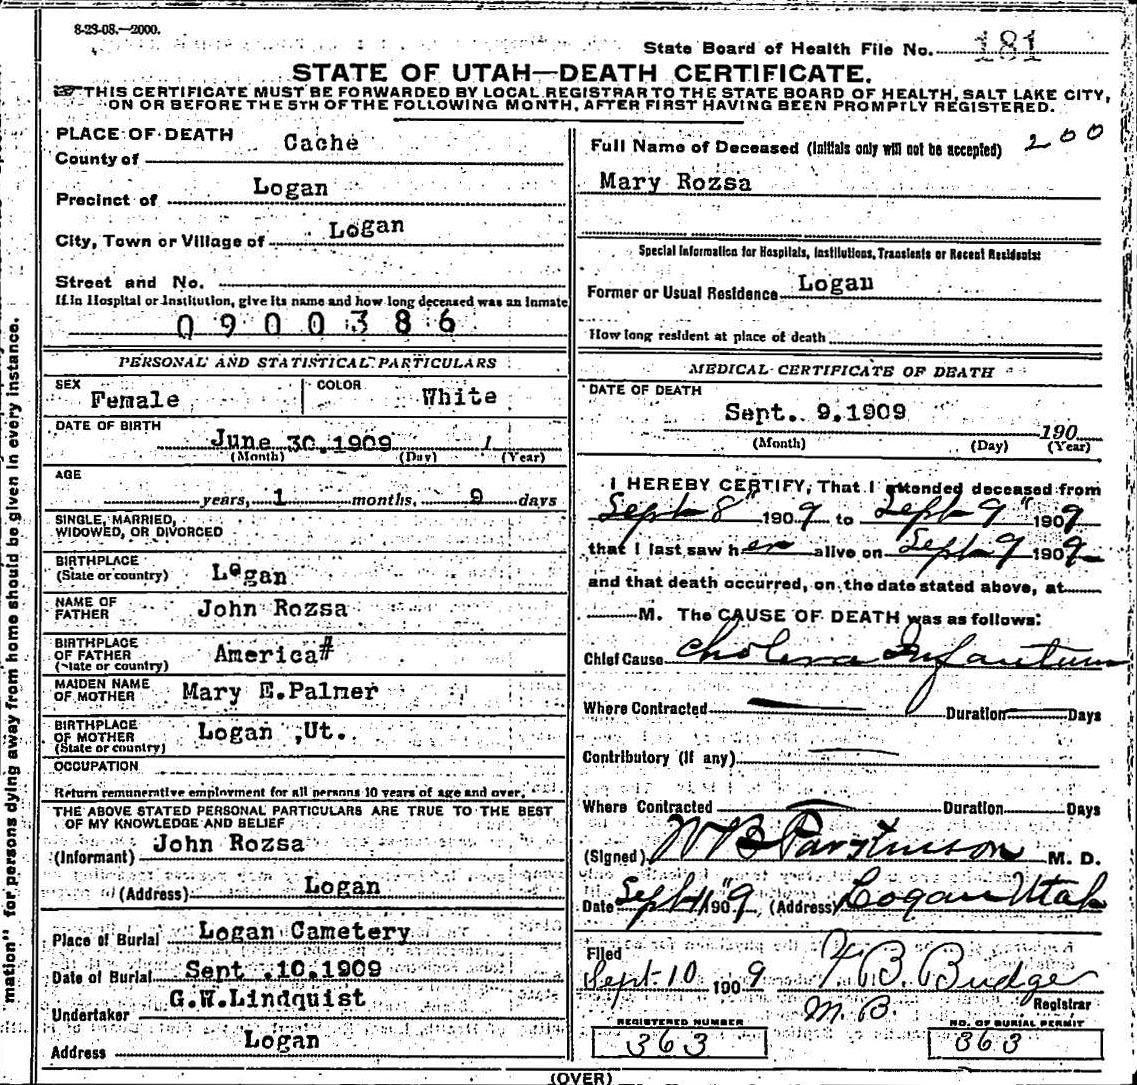 8-23-08.—2000.
State Board of Health File No. 181
STATE OF UTAH—DEATH CERTIFICATE.
THIS CERTIFICATE MUST BE FORWARDED BY LOCAL REGISTRAR TO THE STATE BOARD OF HEALTH, SALT LAKE CITY,
ON OR BEFORE THE 5TH OF THE FOLLOWING MONTH, AFTER FIRST HAVING BEEN PROMPTLY REGISTERED.
mation" for persons dying away from home should be given in every instance.
PLACE OF DEATH
County of Cache
Precinct of Logan
City, Town or Village of Logan
Street and No.
If in Hospital or Institution, give its name and how long deceased was an inmate
0900386
PERSONAL AND STATISTICAL PARTICULARS
SEX Female COLOR White
DATE OF BIRTH
June 30.1909 1
(Month) (Day) (Year)
AGE
years, 1 months, 9 days
SINGLE, MARRIED,
WIDOWED, OR DIVORCED
BIRTHPLACE
(State or country) Logan
NAME OF
FATHER John Rozsa
BIRTHPLACE
OF FATHER America#
(State or country)
MAIDEN NAME
OF MOTHER Mary E.Palmer
BIRTHPLACE
OF MOTHER Logan ,Ut.
(State or country)
OCCUPATION
Return remunerative employment for all persons 10 years of age and over.
THE ABOVE STATED PERSONAL PARTICULARS ARE TRUE TO THE BEST
OF MY KNOWLEDGE AND BELIEF
(Informant) John Rozsa
(Address) Logan
Place of Burial Logan Cametery
Date of Burial Sept .10.1909
Undertaker G.W.Lindquist
Address Logan
Full Name of Deceased (Initials only will not be accepted) 200
Mary Rozsa
Special Information for Hospitals, Institutions, Transients or Recent Residents:
Former or Usual Residence Logan
How long resident at place of death
MEDICAL CERTIFICATE OF DEATH
DATE OF DEATH
Sept. 9.1909
190
(Month) (Day) (Year)
I HEREBY CERTIFY, That I attended deceased from
Sept 8" 1909 to Sept 9" 1909
that I last saw her alive on Sept 9 1909
and that death occurred, on the date stated above, at
M. The CAUSE OF DEATH was as follows:
Chief Cause Cholera Infantum
Where Contracted Duration Days
Contributory (if any)
Where Contracted Duration Days
(Signed) W B Parkinson M. D.
Date Sept 11" 1909, (Address) Logan Utah
Filed
Sept. 10 1909 H. B. Budge
M. B. Registrar
REGISTERED NUMBER NO. OF BURIAL PERMIT
363 363
(OVER)